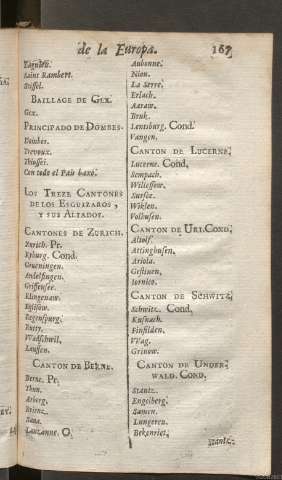 de la Europa. 167
Lagnieu.
Saint Rambert.
Seissel.
BAILLAGE DE GEX.
Gex.
PRINCIPADO DE DOMBES.
Dombes.
Trevoux.
Thoissei.
Con todo el Pais baxo.
LOS TREZE CANTONES
DE LOS ESGUIZAROS,
Y SUS ALIADOS.
CANTONES DE ZURICH.
Zurich. Pr.
Kyburg. Cond.
Grueningen.
Andelfingen.
Griffensee.
Klingenaw.
Eglisow.
Regenspurg.
Rutty.
Wadischwil.
Lauffen.
CANTON DE BERNE.
Berne. Pr.
Thun.
Arberg.
Brienz.
Lauzanne. O.
Aubonne.
Nion.
La Serre.
Erlach.
Aaraw.
Bruk.
Lentsburg. Cond.
Vangen.
CANTON DE LUCERNE.
Lucerne. Cond.
Sempach.
Willessow.
Sursée.
Wiklen.
Volhusen.
CANTON DE URI. COND.
Altolf.
Attinghusen.
Ariola.
Gestinen.
Iornico.
CANTON DE SCHWITZ.
Schwitz. Cond.
Kusnach.
Einsilden.
VVag.
Grinow.
CANTON DE UNDER-
WALD. COND.
Stantz.
Engelberg.
Samen.
Lungeren.
Bekenriet.
Stantz-